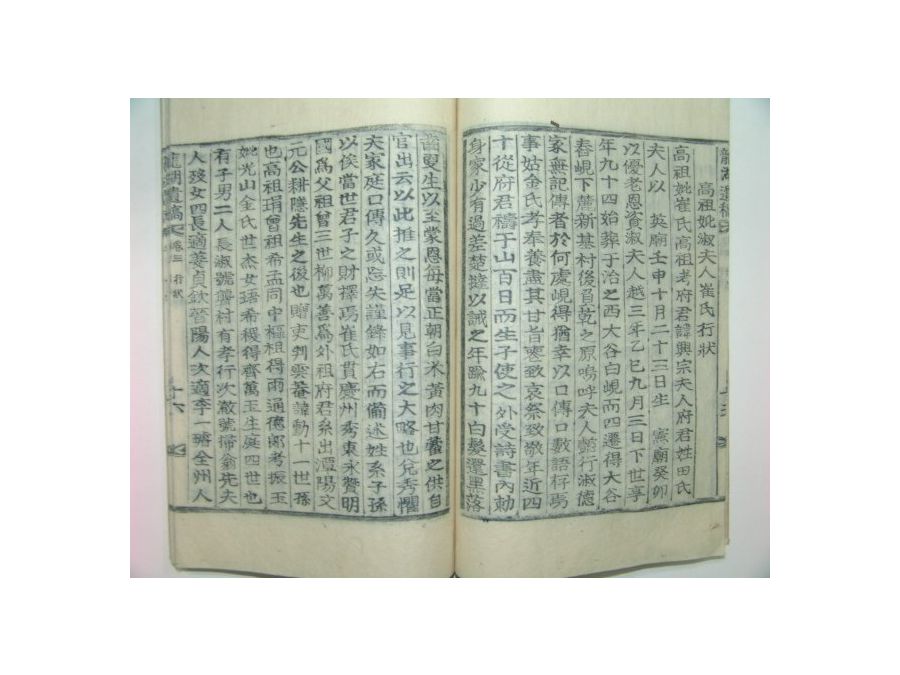 龍湖遺稿
高祖妣淑夫人崔氏行狀
高祖妣崔氏高祖考府君諱興宗夫人府君姓田氏
夫人以 英廟壬申十月二十三日生 憲廟癸卯
以優老恩資淑夫人越三年乙巳九月三日下世享
年九十四始葬于治之西大谷白峴而四遷得大谷
春峴下麓新基村後負乾之原嗚呼夫人懿行淑德
家無記傳者於何處峴得猶幸以口傳口數語存焉
事姑金氏孝奉養盡其甘旨塞致哀祭致敬年近四
十從府君禱于山百日而生子使之外受詩書內勅
身家少有過差楚撻以誡之年踰九十白髮還黑落
齒更生以至蒙恩每當正朝白米黃肉甘 之供自
官出云以此推之則足以見事行之大略也 秀懼
夫家庭口傳久或忘失謹錄如右而備述姓系子孫
以俟當世君子之財擇焉崔氏貫慶州秀東永贊明
國爲父祖曾三世柳萬善爲外祖府君系出潭陽文
元公耕隱先生之後也贈吏判雲菴諱勳十一世孫
也高祖琄曾祖希孟同中樞祖得雨通德郞考振玉
妣光山金氏世杰女珸希稷得齊萬玉生庭四世也
有子男二人長淑號龔村有孝行次澈號掃翁先夫
人歿女四長適姜貞欽晉陽人次適李一 全州人
龍湖遺稿 卷三 行狀 十六